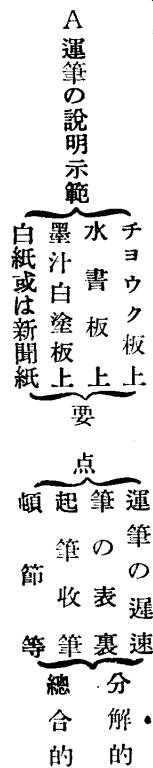 A運筆の説明示範
チョウク板上
水書板上
墨汁白塗板上
白紙或は新聞紙
要点
運筆の遅速
筆の表裏
起筆收筆
頓節等
分解的
總合的